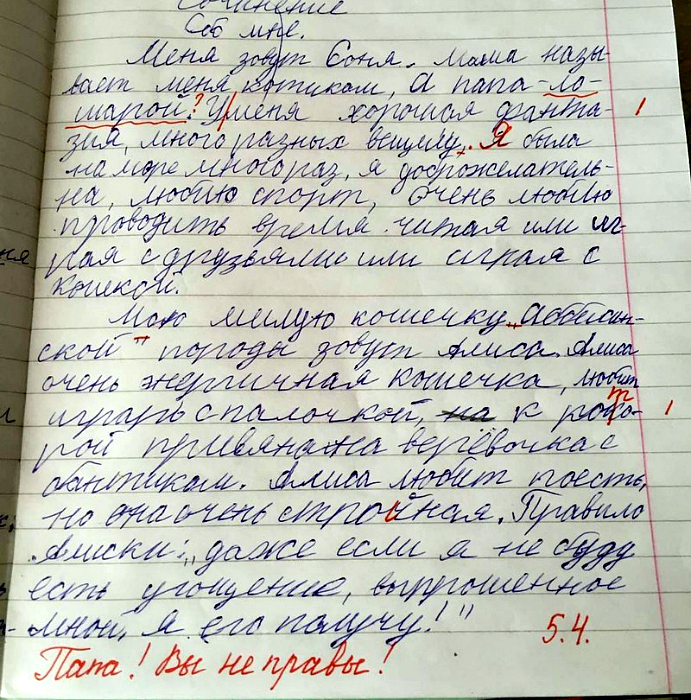 Сочинение
Обо мне.
Меня зовут Соня. Мама назы-
вает меня котиком, а папа - ло-
шарой? У меня хорошая фанта-
зия, много разных вещему. Я была
на море много раз, я доброжелатель-
на, люблю спорт, Очень люблю
проводить время читая или иг-
рая с друзьями или играя с
кошкой.
Мою милую кошечку "Аббисин-
ской" породы зовут Алиса. Алиса
очень энергичная кошечка, любит
играть с палочкой, на к кото-
рой привянана верёвочка с
бантиком. Алиса любит поесть,
но она очень стройная. Правило
Алиски: "даже если я не буду
есть угощение, выпрошенное
мной, я его получу!"
5.4.
Папа! Вы не правы!